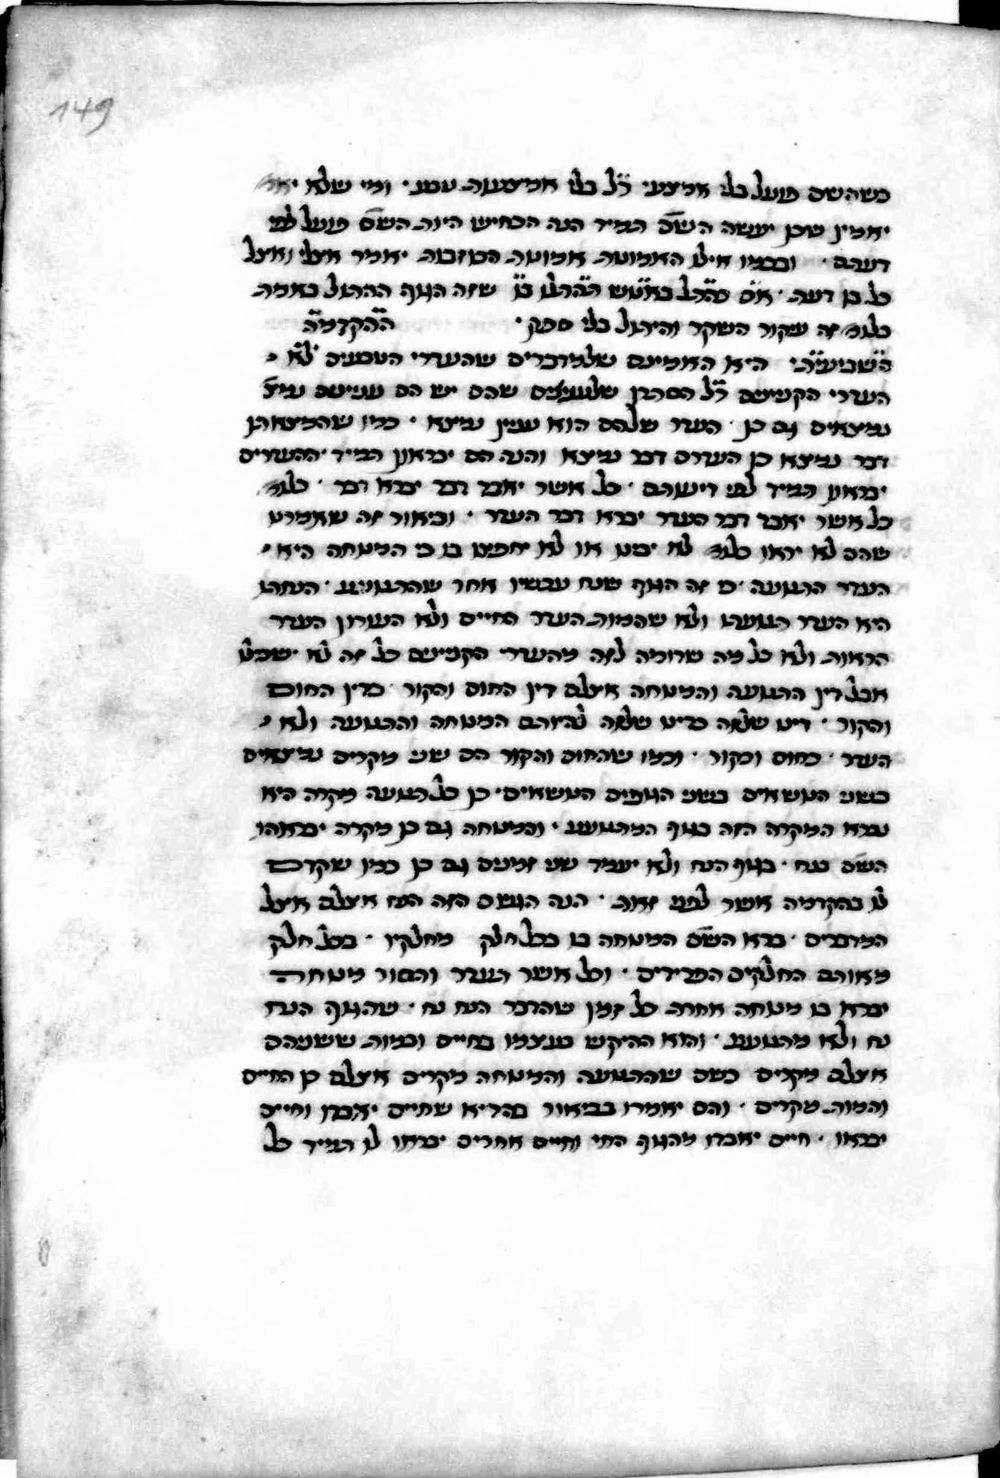 149
כשהשם פועל בלי אמצעי ר״ל בלי אמצעות טבע · ומי שלא
יאמין שכן יעשה השם תמיד הנה הכחיש היות השם פועל לפי
דעתם · ובכמו אילו האמונות אמונות הכוזבות יאמר אצלי ואצל
כל בן דעה · שזה הגוף ההתול באמת
כלומ׳ זה עקור השקר והיתול בלי ספק · ההקדמה
השביעית · היא האמינם שלמדברים שהעדרי הטבעים לא
העדרי הקנינים ר״ל הסרתן שלענינים שהם יש הם ענינים
נמצאים גם כן · העדר שלהם הוא ענין נמצא · כמו שהמצאתן
דבר נמצא כן העדרם דבר נמצא והנה הם יבראון תמיד ההעדרים
יבראון תמיד לפי דעתם · כל אשר יאבד דבר יברא דבר · כלומ׳
כל אשר יאבד דבר העדר יברא דבר העדר · וביאור זה שאמרנו
שהם לא יראו כלומ׳ לא יבינו או לא יחפצו בו כי המנוחה היא
העדר התנועה · כי זה הגוף שנח עכשיו אחר שהתנועע ·
היא העדר תנועתו ולא שהמות העדר החיים ולא העורון העדר
הראות ולא כל מה שדומה לזה מהעדרי הקנינים כל זה לא ישכילו
אבל דין התנועה והמנוחה אצלם דין החום והקור · כדין החום
והקור · דינו שלזה כדינו שלזה להיותם המנוחה והתנועה ולא
העדר · כחום וכקור · וכמו שהחום והקור הם שני מקרים נמצאים
בשני הנושאים בשני הגופים הנושאים · כן כל תנועה מקרה היא
נברא המקרה הזה בגוף המתנועע · והמנוחה גם כן מקרה יבראהו
השם בנח · בגוף הנח ולא יעמוד שני זמנים גם כן כמו שקדם
לנו בהקדמה אשר לפני זאת · הנה הגשם הזה הנח אצלם אצל
המדברים · ברא השם המנוחה בו בכל חלק מחלקיו · בכל חלק
מאותם החלקים הפרדים · וכל אשר תעדר ותסור מנוחה
יברא בו מנוחה אחרת כל זמן שהדבר הנח נח · שהגוף הנח
נח ולא מתנועע · והוא ההיקש בעצמו בחיים ובמות ששניהם
אצלם מקרים כשם שהתנועה והמנוחה מקרים אצלם כן החיים
והמות מקרים · והם יאמרו בביאור בהדיא שחיים יאבדו וחיים
יבראו · חיים יאבדו מהגוף החי וחיים אחרים יבראו לו תמיד כל